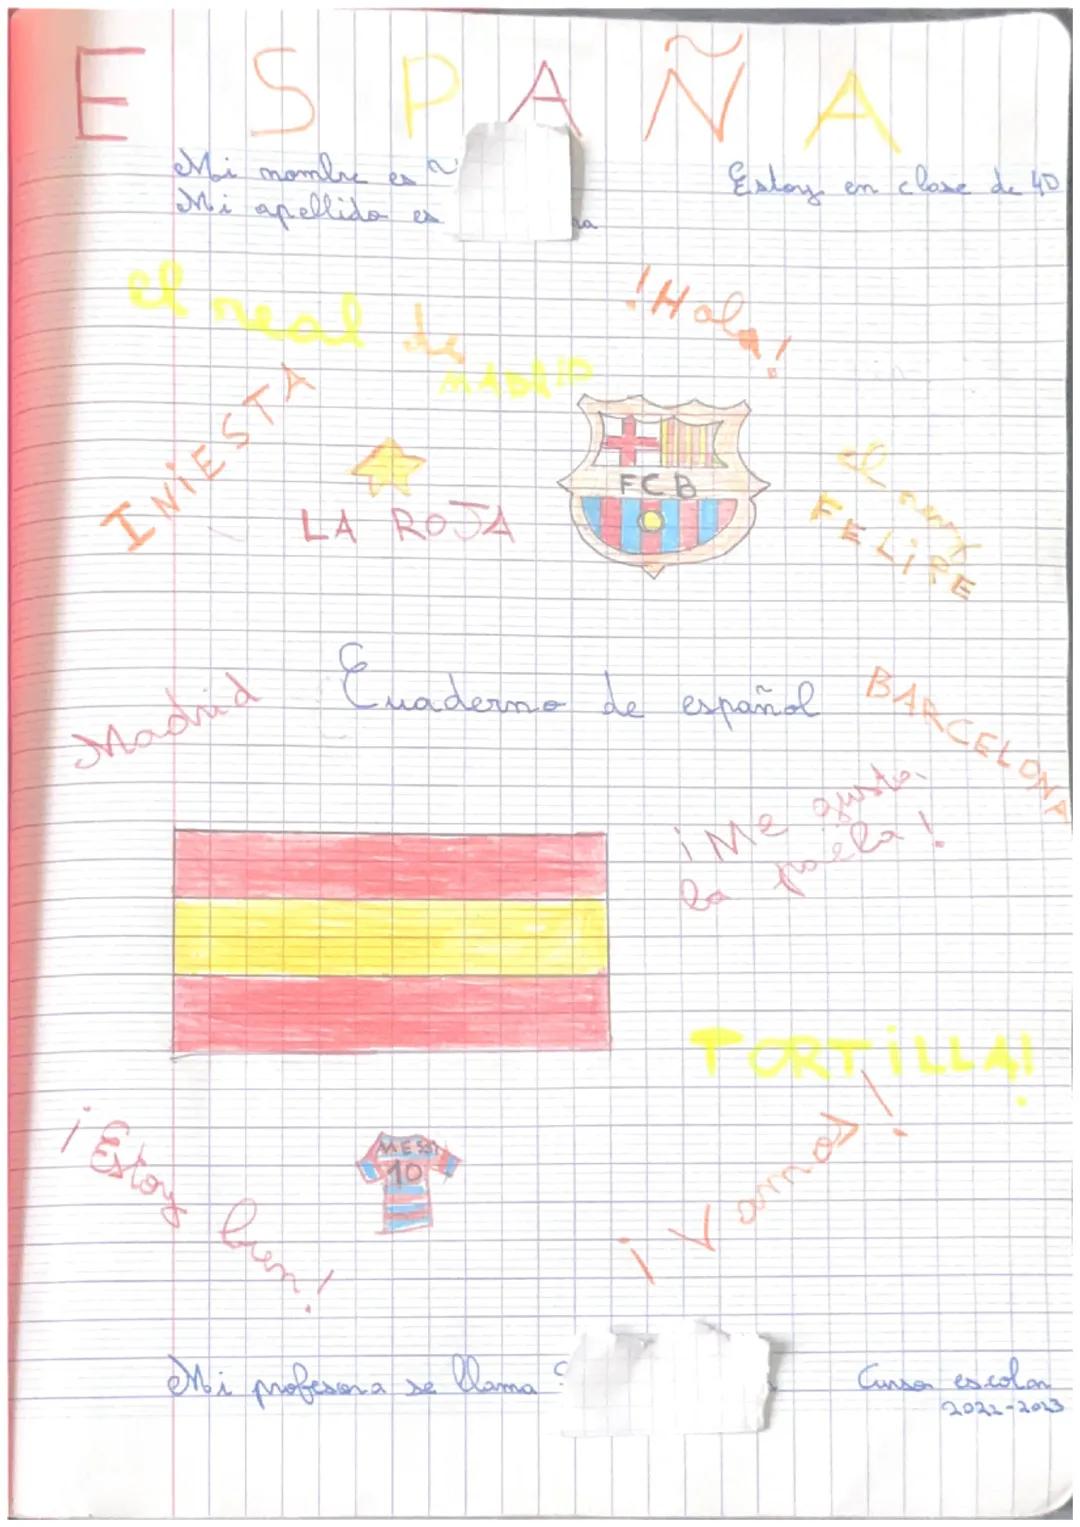 ESPAÑA
Mi nombre es
Mi apellido es
Estoy en clase de 4D
el real de
MADRID
!Hola!
INiESTA
LA ROJA
FCB
el rey
FELiPE
Madrid
Cuaderno de español
BARCELONA
¡Me gusta
la paella!
TORTiLLA!
¡Estoy bien!
MESSI
10
¡Vamos!
Mi profesora se llama
Curso escolar
2022-2023